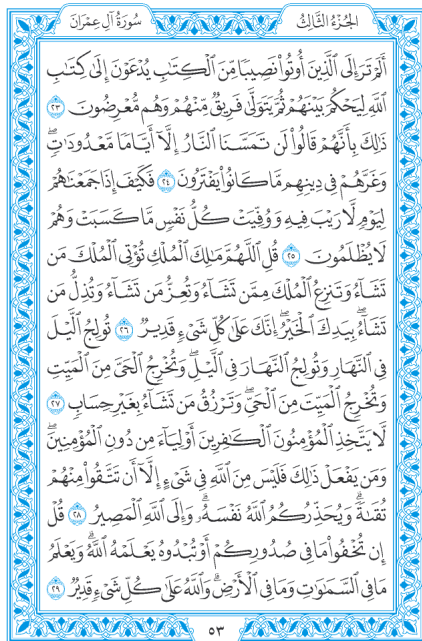 الجُزْءُ الثَّالِثُ
سُورَةُ آلِ عِمْرَانَ
أَلَمْ تَرَ إِلَى ٱلَّذِينَ أُوتُواْ نَصِيبٗا مِّنَ ٱلۡكِتَٰبِ يُدۡعَوۡنَ إِلَىٰ كِتَٰبِ
ٱللَّهِ لِيَحۡكُمَ بَيۡنَهُمۡ ثُمَّ يَتَوَلَّىٰ فَرِيقٞ مِّنۡهُمۡ وَهُم مُّعۡرِضُونَ ٢٣
ذَٰلِكَ بِأَنَّهُمۡ قَالُواْ لَن تَمَسَّنَا ٱلنَّارُ إِلَّآ أَيَّامٗا مَّعۡدُودَٰتٖۖ
وَغَرَّهُمۡ فِي دِينِهِم مَّا كَانُواْ يَفۡتَرُونَ ٢٤ فَكَيۡفَ إِذَا جَمَعۡنَٰهُمۡ
لِيَوۡمٖ لَّا رَيۡبَ فِيهِ وَوُفِّيَتۡ كُلُّ نَفۡسٖ مَّا كَسَبَتۡ وَهُمۡ
لَا يُظۡلَمُونَ ٢٥ قُلِ ٱللَّهُمَّ مَٰلِكَ ٱلۡمُلۡكِ تُؤۡتِي ٱلۡمُلۡكَ مَن
تَشَآءُ وَتَنزِعُ ٱلۡمُلۡكَ مِمَّن تَشَآءُ وَتُعِزُّ مَن تَشَآءُ وَتُذِلُّ مَن
تَشَآءُۖ بِيَدِكَ ٱلۡخَيۡرُۖ إِنَّكَ عَلَىٰ كُلِّ شَيۡءٖ قَدِيرٞ ٢٦ تُولِجُ ٱلَّيۡلَ
فِي ٱلنَّهَارِ وَتُولِجُ ٱلنَّهَارَ فِي ٱلَّيۡلِۖ وَتُخۡرِجُ ٱلۡحَيَّ مِنَ ٱلۡمَيِّتِ
وَتُخۡرِجُ ٱلۡمَيِّتَ مِنَ ٱلۡحَيِّۖ وَتَرۡزُقُ مَن تَشَآءُ بِغَيۡرِ حِسَابٖ ٢٧
لَّا يَتَّخِذِ ٱلۡمُؤۡمِنُونَ ٱلۡكَٰفِرِينَ أَوۡلِيَآءَ مِن دُونِ ٱلۡمُؤۡمِنِينَۖ
وَمَن يَفۡعَلۡ ذَٰلِكَ فَلَيۡسَ مِنَ ٱللَّهِ فِي شَيۡءٍ إِلَّآ أَن تَتَّقُواْ مِنۡهُمۡ
تُقَىٰةٗۗ وَيُحَذِّرُكُمُ ٱللَّهُ نَفۡسَهُۥۗ وَإِلَى ٱللَّهِ ٱلۡمَصِيرُ ٢٨ قُلۡ
إِن تُخۡفُواْ مَا فِي صُدُورِكُمۡ أَوۡ تُبۡدُوهُ يَعۡلَمۡهُ ٱللَّهُۗ وَيَعۡلَمُ
مَا فِي ٱلسَّمَٰوَٰتِ وَمَا فِي ٱلۡأَرۡضِۗ وَٱللَّهُ عَلَىٰ كُلِّ شَيۡءٖ قَدِيرٞ ٢٩
٥٣